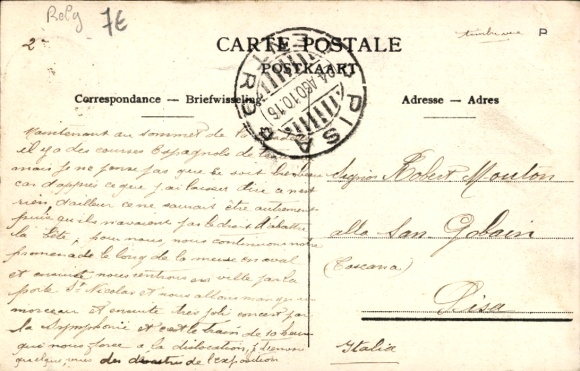 Belg 7€
timbrée P
2
CARTE POSTALE
POSTKAART
Correspondance — Briefwisseling
Adresse — Adres
PISA
24 AGO 10 16
Maintenant au sommet de la
il y a des courses Espagnols de
mais je ne pense pas que ce soit
car d'après ce que j'ai laisser dire ce n'est
rien, d'ailleur ce ne saurait être autrement
puisqu'ils n'avaient pas le droit d'abattre
la bête, pour nous, nous continuons notre
promenade le long de la meuse en aval
et ensuite nous rentrions en ville par la
porte St Nicolas et nous allons manger un
morceau et ensuite très joli concert par
la Symphonie et c'est le train de 10 heures
que nous force a la dislocation,
quelques vues des désastres de l'exposition
Signor Robert Mouton
alla San Gobain
(Toscana)
Pisa
Italia